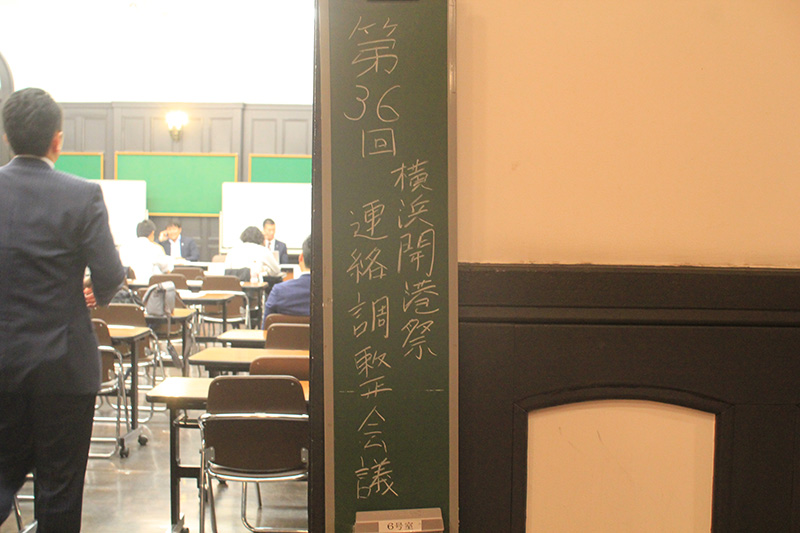 第36回
横浜開港祭
連絡調整会議
6号室